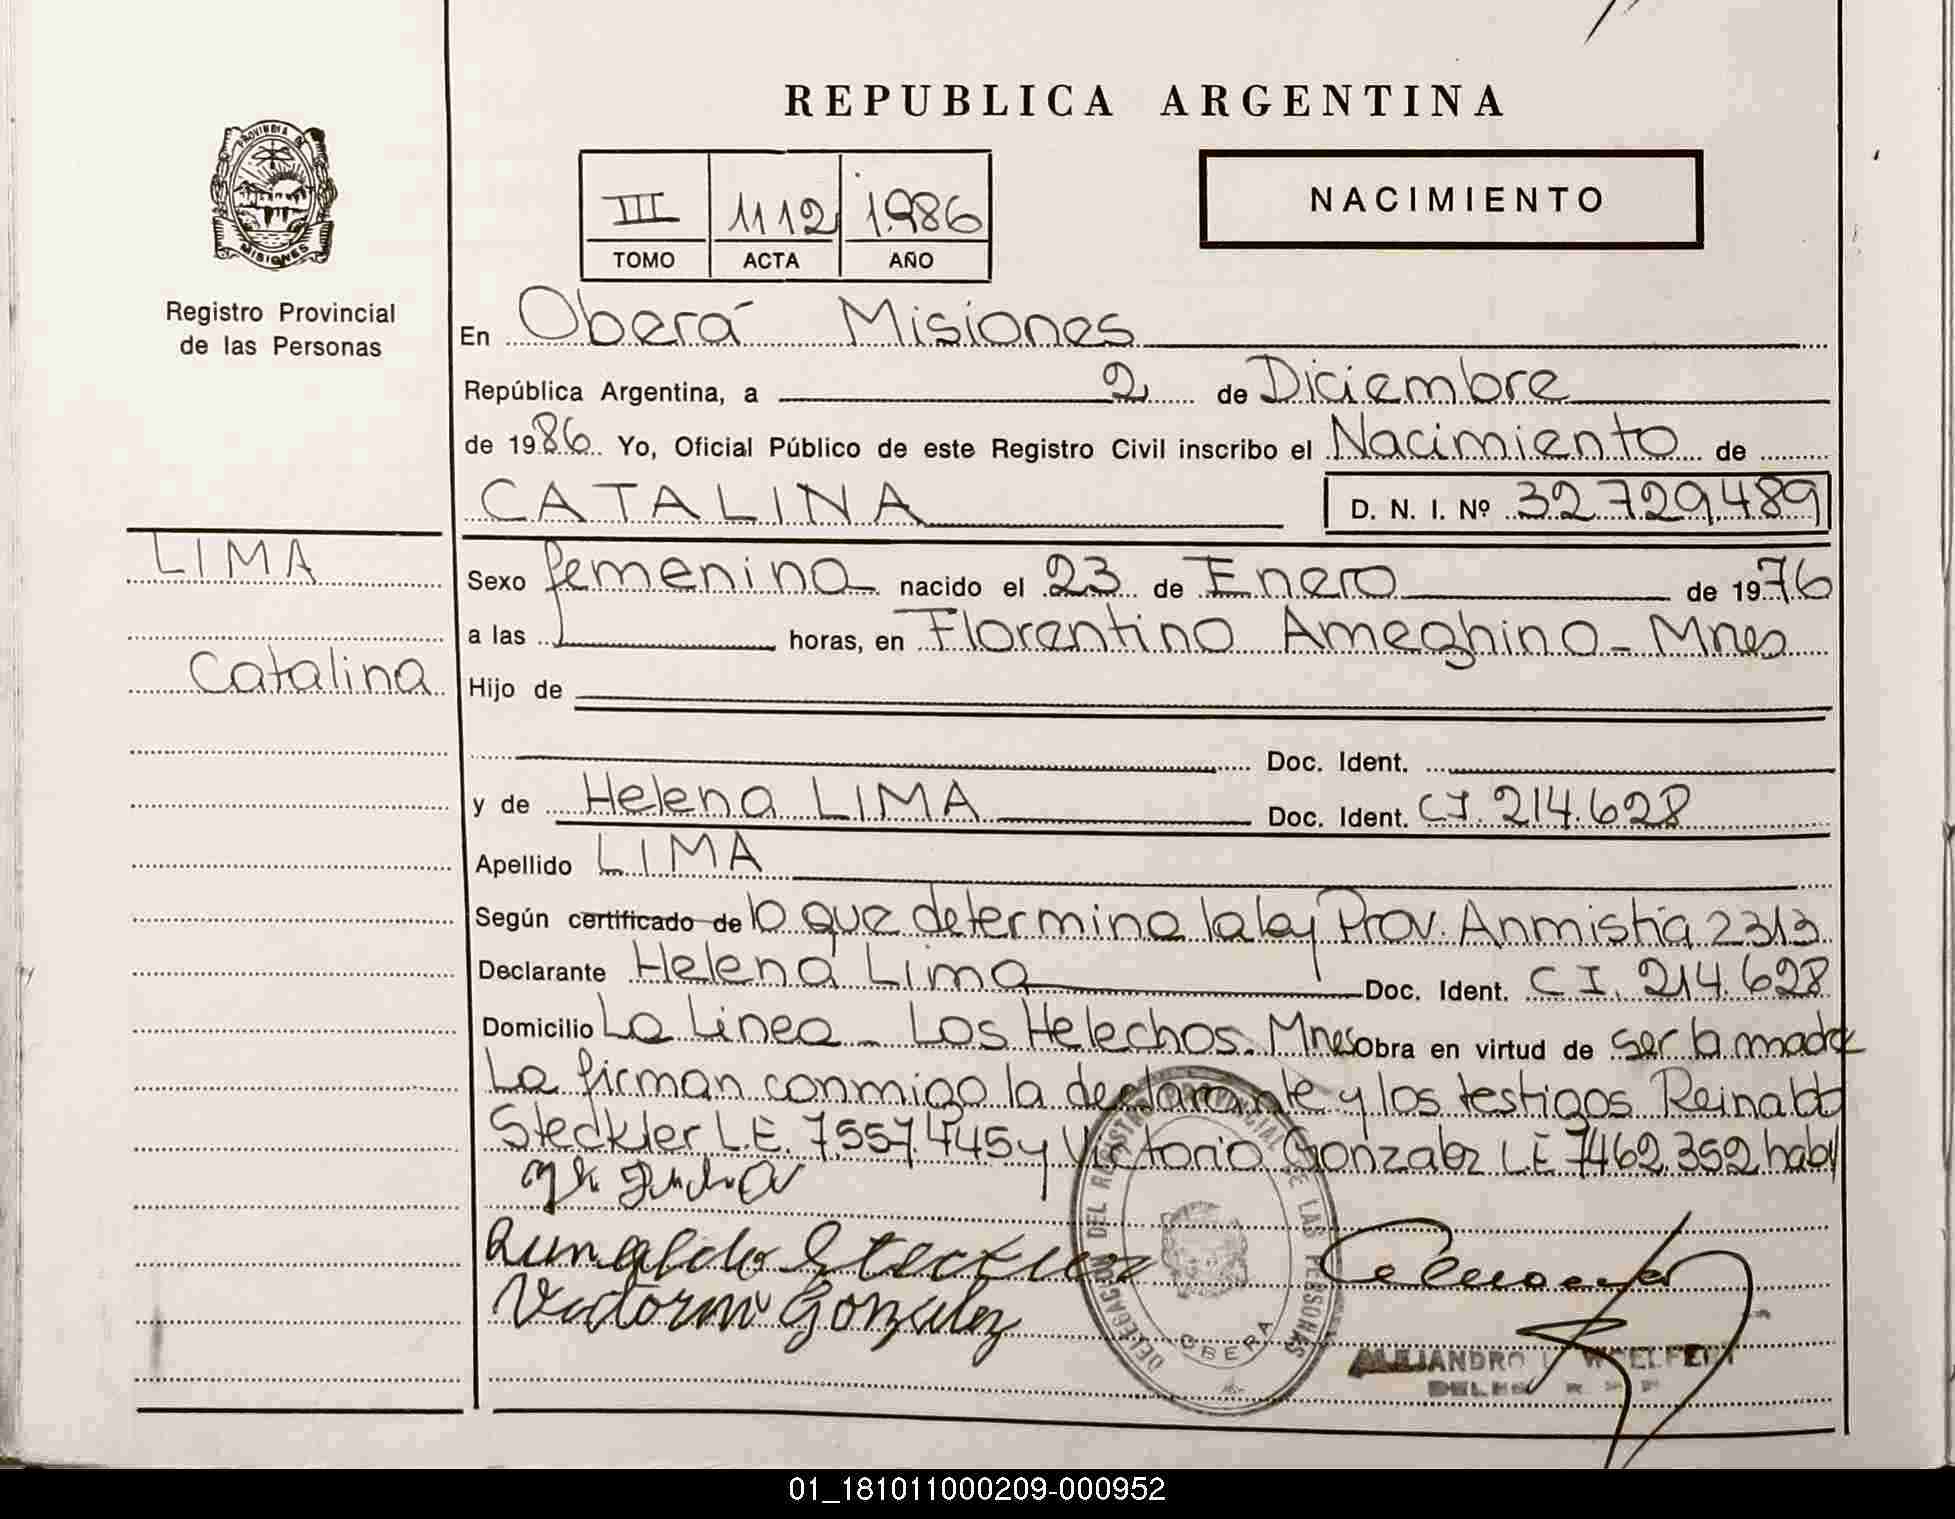 REPUBLICA ARGENTINA
PROVINCIA DE
MISIONES
Registro Provincial
de las Personas
III 1112 1.986
TOMO ACTA AÑO
NACIMIENTO
En Oberá Misiones
República Argentina, a 2 de Diciembre
de 1986 Yo, Oficial Público de este Registro Civil inscribo el Nacimiento de
CATALINA D. N. I. Nº 32.729.489
LIMA
Catalina
Sexo femenino nacido el 23 de Enero de 1976
a las horas, en Florentino Ameghino - Mnes
Hijo de
Doc. Ident.
y de Helena LIMA Doc. Ident. CI. 214.628
Apellido LIMA
Según certificado de lo que determina la ley Prov. Anmistia 2313
Declarante Helena Lima Doc. Ident. C I. 214.628
Domicilio La Linea - Los Helechos - Mnes Obra en virtud de ser la madre
La firman conmigo la declarante y los testigos Reinaldo
Steckler L.E. 7.557.445 y Victorio Gonzalez LE 7462.352 habl
Steckler
Gonzalez
DELEGACION DEL REGISTRO PROVINCIAL DE LAS PERSONAS
OBERA
ALEJANDRO
01_181011000209-000952